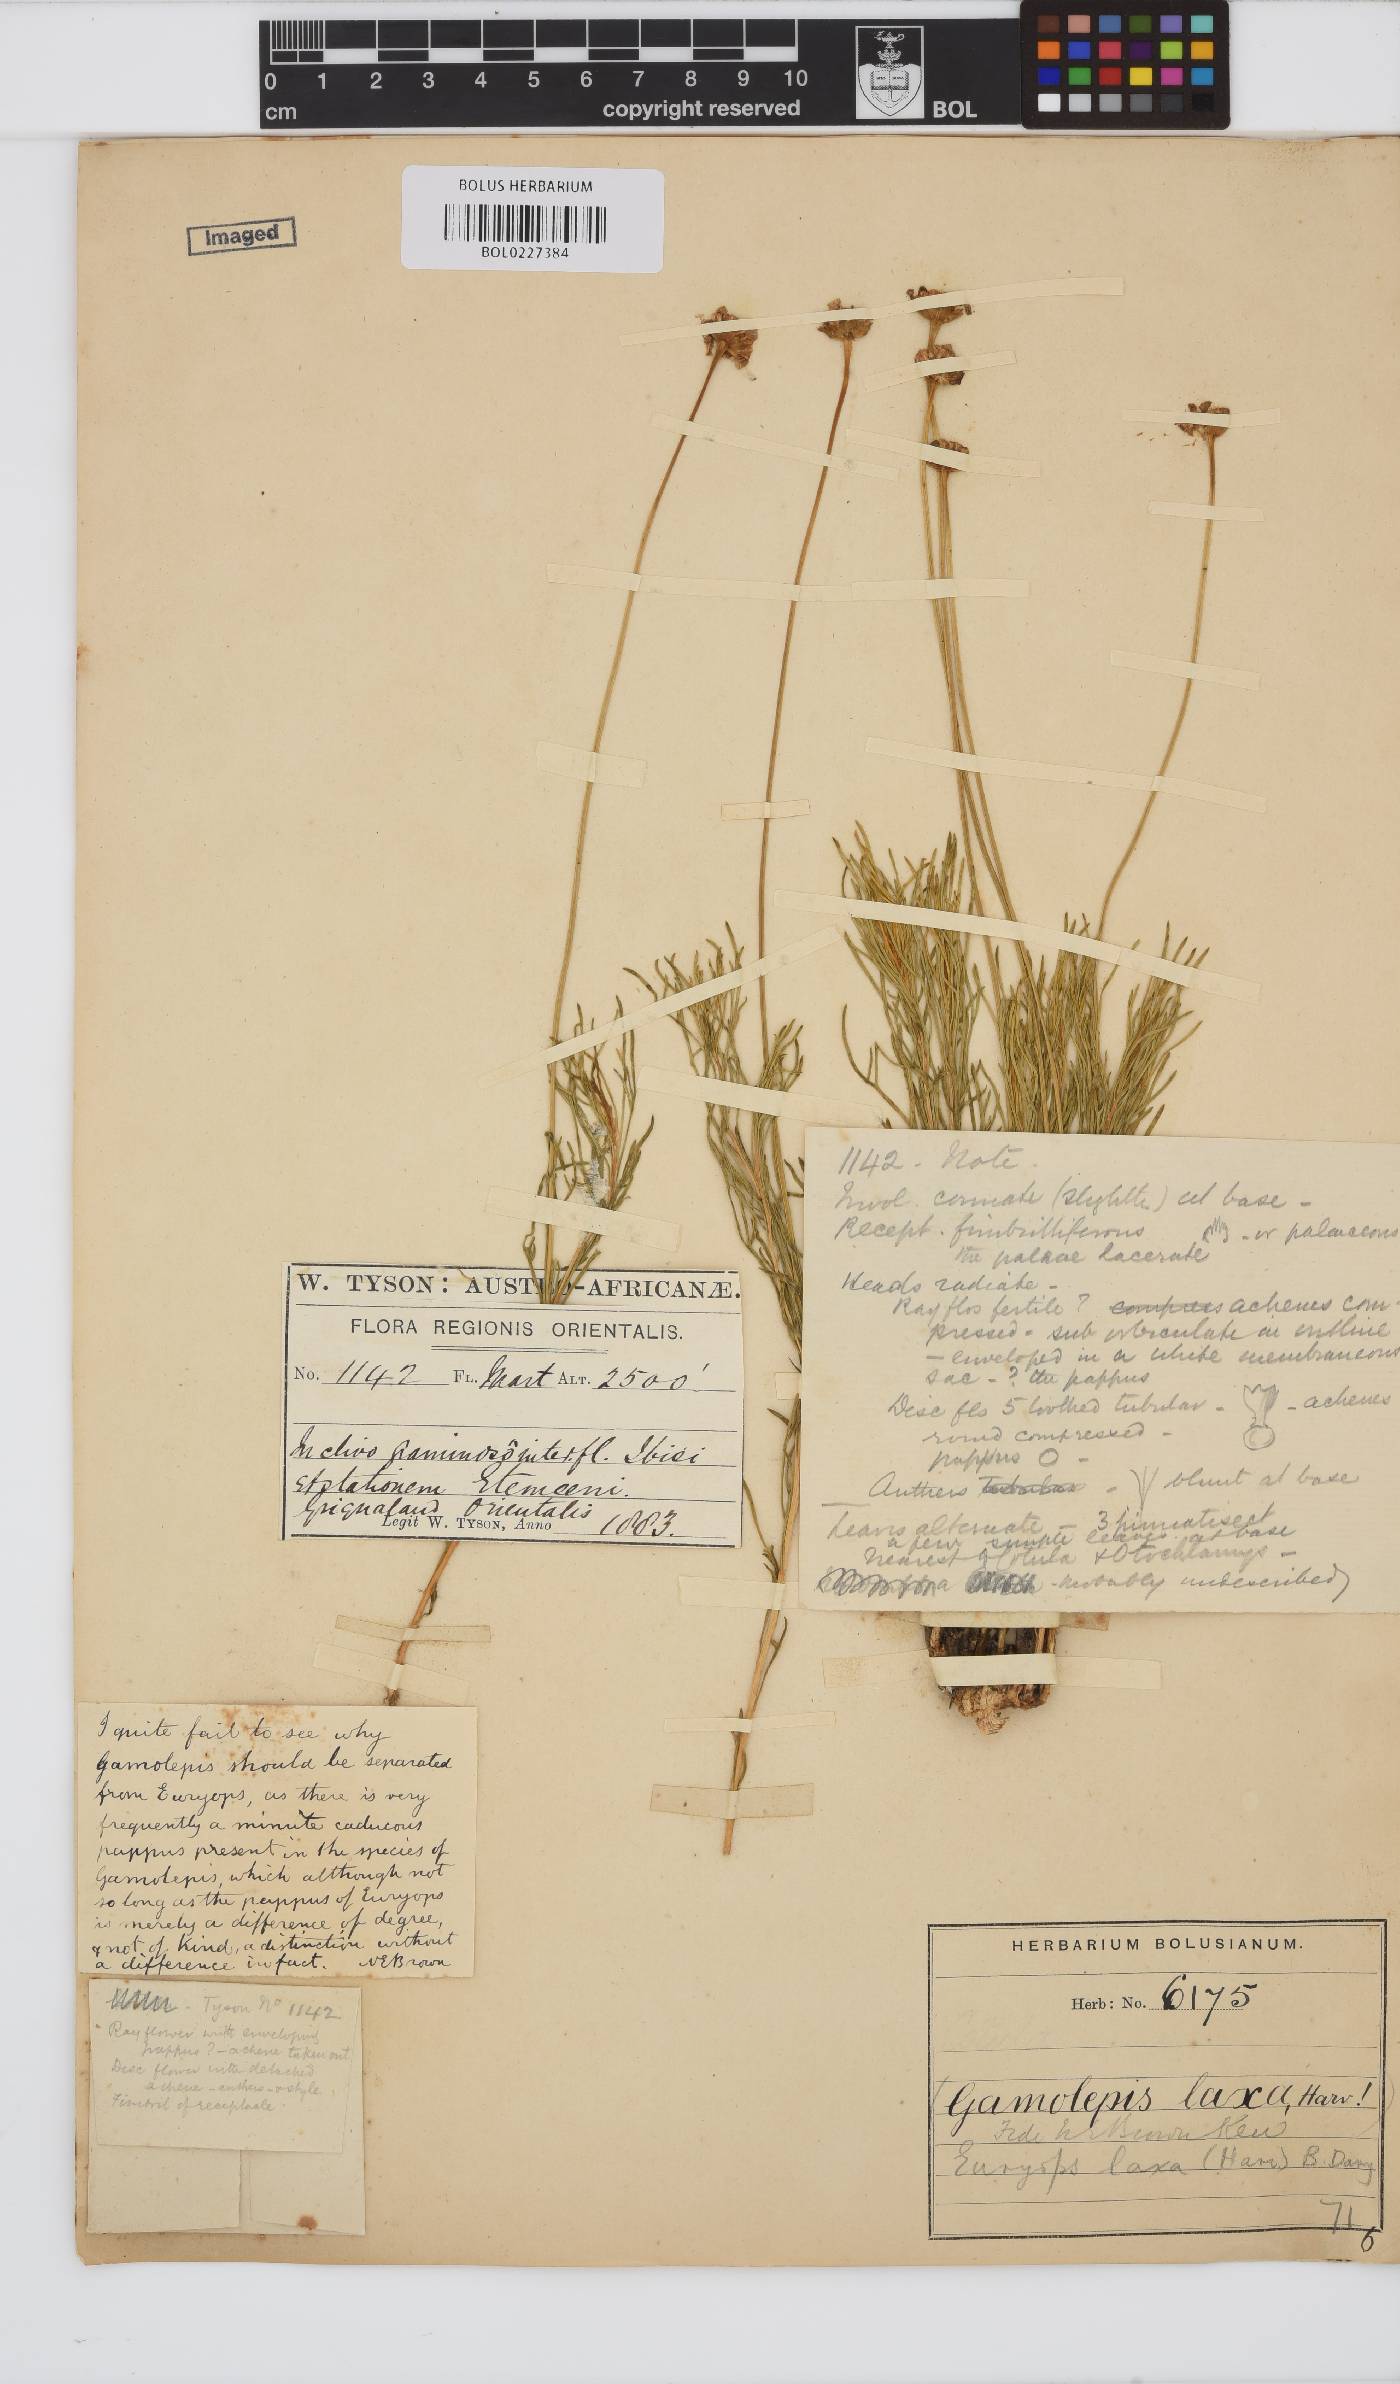 0 1 2 3 4 5 6 7 8 9 10
cm copyright reserved BOL
BOLUS HERBARIUM
BOL0227384
Imaged
1142 - Note.
Invol. connate (slightly) at base -
Recept. fimbrilliferous - or paleaceous
the paleae lacerate
Heads radiate -
Ray flos fertile? compres achenes com-
pressed - sub orbiculate in outline
- enveloped in a white membraneous
sac - ? the pappus
Disc fls 5 toothed tubular - - achenes
round compressed -
pappus O -
Anthers tubular - blunt at base
Leaves alternate - 3 pinnatisect
a few simple leaves at base
nearest Cotula & Otochlamys -
probably undescribed)
W. TYSON: AUSTRO-AFRICANÆ.
FLORA REGIONIS ORIENTALIS.
No. 1142 FL. Mart ALT. 2500'
In clivo graminoso inter fl. Ibisi
et stationem Etemceni.
Griqualand Orientalis
Legit W. TYSON, Anno 1883.
I quite fail to see why
Gamolepis should be separated
from Euryops, as there is very
frequently a minute caducous
pappus present in the species of
Gamolepis, which although not
so long as the pappus of Euryops
is merely a difference of degree,
& not of kind, a distinction without
a difference in fact. NEBrown
- Tyson No 1142
Ray flower with enveloping
pappus? - achene taken out
Disc flower with detached
achene - anthers - & style
Fimbril of receptacle.
HERBARIUM BOLUSIANUM.
Herb: No. 6175
Gamolepis laxa, Harv!
Fide N. E. Brown Kew
Euryops laxa (Harv.) B. Davy
71
6